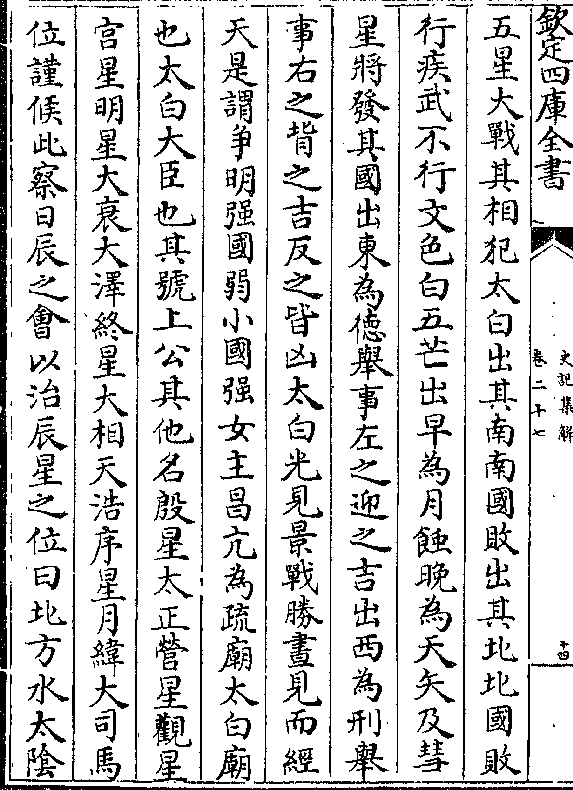 欽定四庫全書
史記集解
卷二十七
十四
五星大戰其相犯太白出其南南國敗出其北北國敗
行疾武不行文色白五芒出早為月蝕晚為天矢及彗
星將發其國出東為德舉事左之迎之吉出西為刑舉
事右之背之吉反之皆凶太白光見景戰勝晝見而經
天是謂爭明强國弱小國强女主昌亢為疏廟太白廟
也太白大臣也其號上公其他名殷星太正營星觀星
宫星明星大衰大澤終星大相天浩序星月緯大司馬
位謹候此察日辰之會以治辰星之位曰北方水太陰